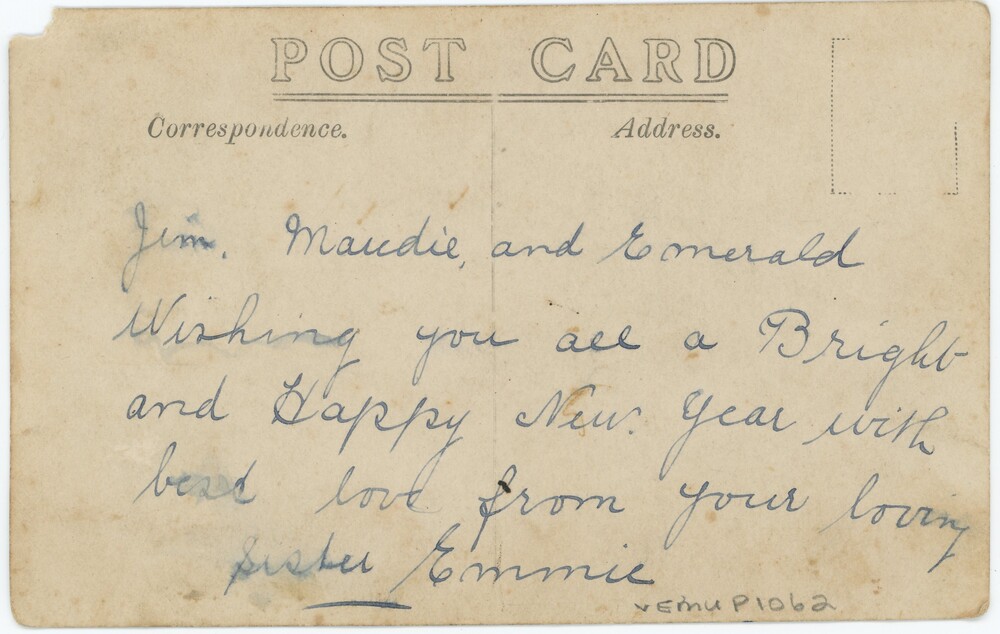 POST CARD
Correspondence.
Address.
Jim. Maudie, and Emerald
Wishing you all a Bright
and Happy New. Year with
best love from your loving
sister Emmie
vEMU P1062